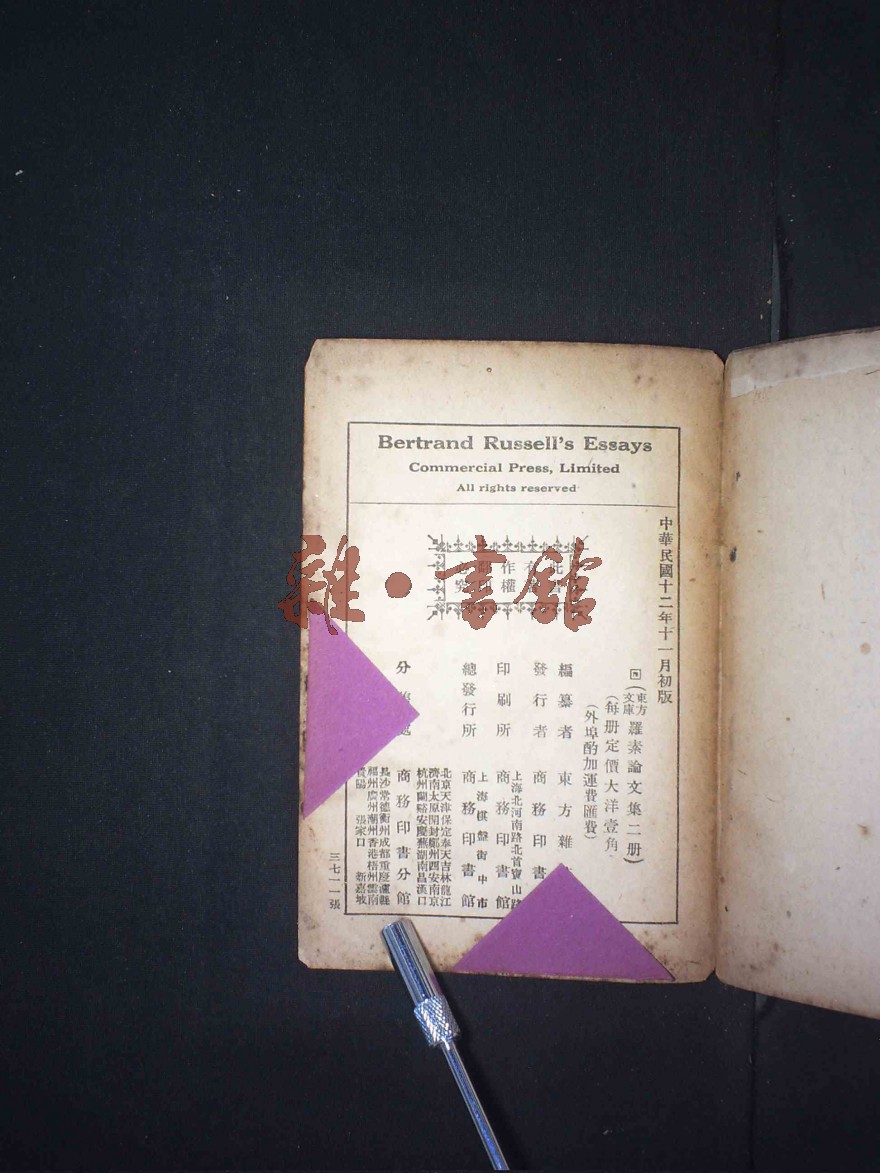 Bertrand Russell's Essays
Commercial Press, Limited
All rights reserved
中華民國十二年十一月初版
(東方文庫)羅素論文集二册)
(每册定價大洋壹角
(外埠酌加運費匯費)
作權
究
編纂者 東方雜
發行者 商務印書
印刷所 上海北河南路北首寶山路 商務印書館
總發行所 上海棋盤街中市 商務印書館
分
北京天津保定奉天吉林龍江
濟南太原開封鄭州西安南京
杭州蘭谿安慶蕪湖南昌漢口
商務印書分館
長沙常德衡州成都重慶瀘縣
福州廣州潮州香港梧州雲南
貴陽 張家口 新嘉坡
三七一一張
雜·書館